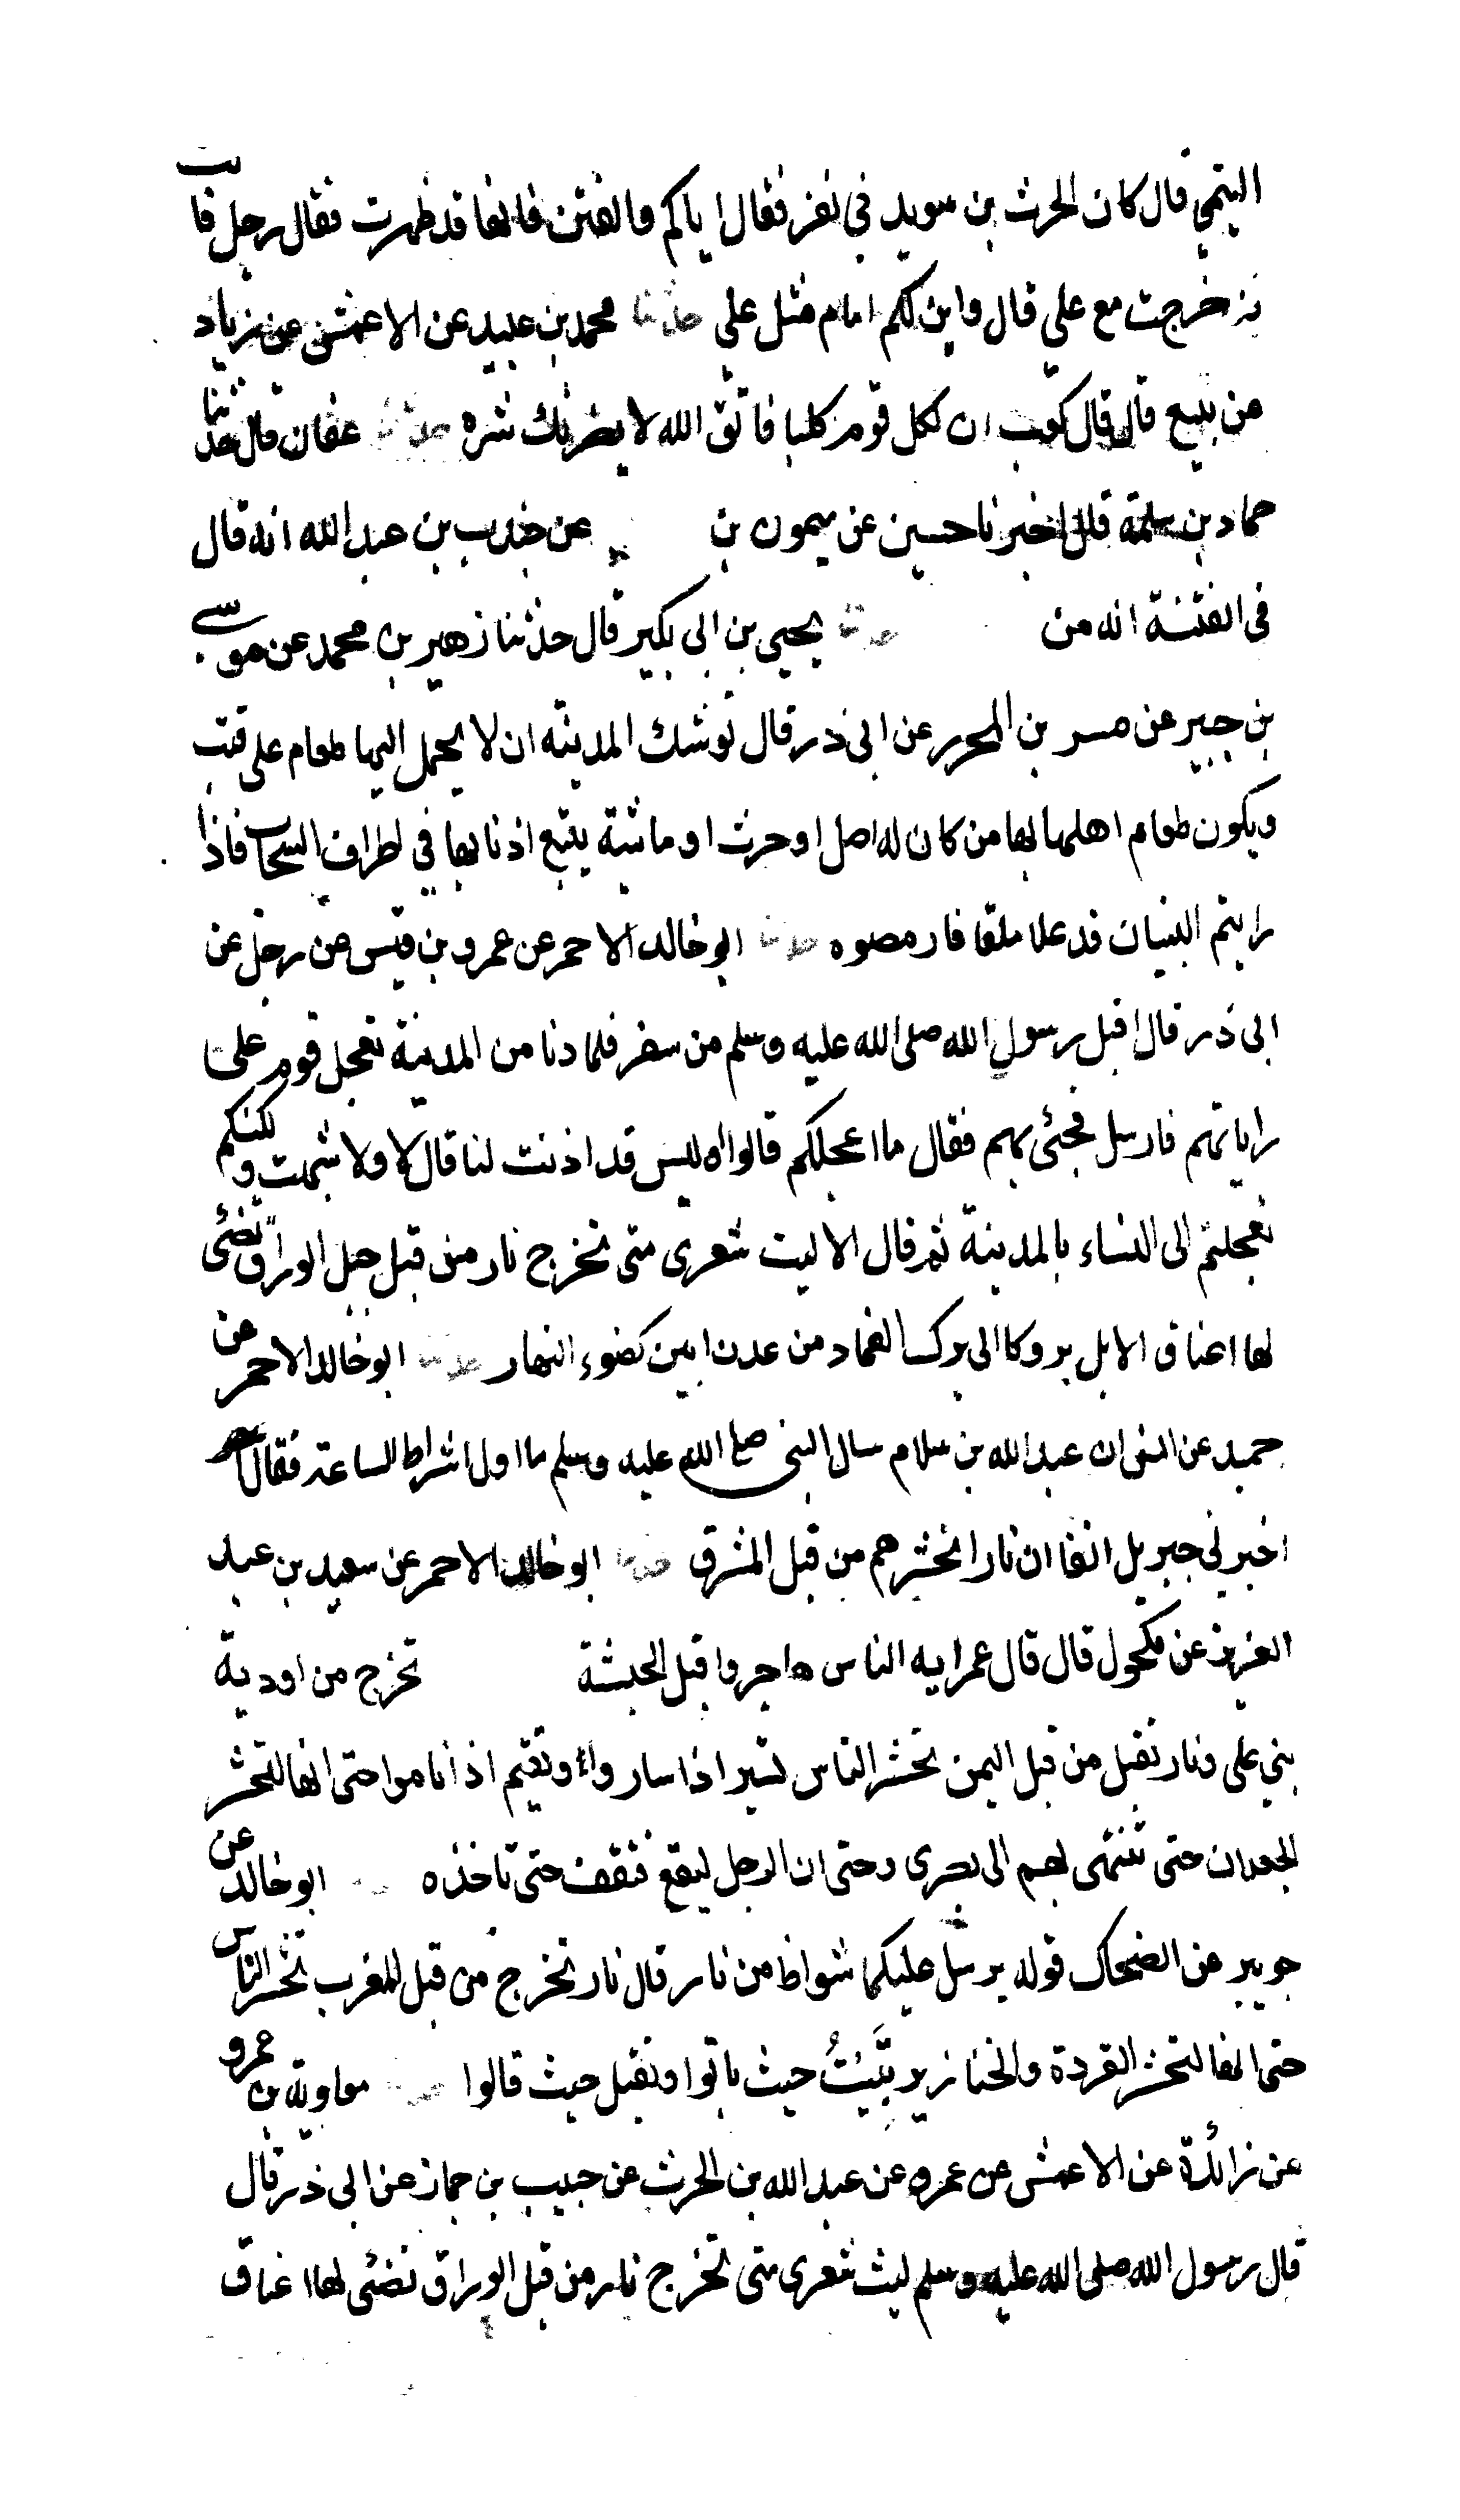 التيمي قال كان الحرث بن سويد في نفر فقال اياكم والفتن فانها قد ظهرت فقال رجل فانت
قد خرجت مع علي قال واين لكم امام مثل علي حدثنا محمد بن عبيد عن الاعمش عن زياد
عن تبيع قال قال كعب ان لكل قوم كلبا فاتق الله لا يضرنك شره حدثنا عفان قال حدثنا
حماد بن سلمة قال اخبرنا حسين عن ميمون بن عن جندب بن عبد الله انه قال
في الفتنة انه من حدثنا يحيى بن ابي بكير قال حدثنا زهير بن محمد عن موسى
بن جبير عن مسر بن المحرر عن ابي ذر قال توشك المدينة ان لا يحمل اليها طعام على قتب
ويكون طعام اهلها بها من كان له اصل او حرث او ماشية يتبع اذنابها في اطراف السحاب فاذا
رايتم البنيان قد علا سلعا فارمصوه حدثنا ابو خالد الاحمر عن عمرو بن قيس عن رجل عن
ابي ذر قال اقبل رسول الله صلى الله عليه وسلم من سفر فلما دنا من المدينة تعجل قوم على
راياتهم فارسل فجئ بهم فقال ما اعجلكم قالوا اوليس قد اذنت لنا قال لا ولا شبهت ولكنكم
تعجلتم الى النساء بالمدينة ثم قال الا ليت شعرى متى تخرج نار من قبل جبل الوراق تضئ
لها اعناق الابل بروكا الى برك الغماد من عدن ابين كضوء النهار حدثنا ابو خالد الاحمر عن
حميد عن انس ان عبد الله بن سلام سال النبي صلى الله عليه وسلم ما اول اشراط الساعة فقال
اخبرني جبريل انفا ان نارا تحشرهم من قبل المشرق حدثنا ابو خالد الاحمر عن سعيد بن عبد
العزيز عن مكحول قال قال عمر ايه الناس هاجروا قبل الحبشة تخرج من اودية
بني علي ونار تقبل من قبل اليمن تحشر الناس تسير اذا ساروا وتقيم اذا ناموا حتى انها لتحشر
الجعلان حتى تنتهى بهم الى بصرى وحتى ان الرجل ليقع فتقف حتى تاخذه ابو خالد عن
جويبر عن الضحاك قوله يرسل عليكما شواظ من نار قال نار تخرج من قبل المغرب تحشر الناس
حتى انها لتحشر القردة والخنازير تبيت حيث باتوا وتقيل حيث قالوا معاوية بن عمرو
عن زائدة عن الاعمش عن عمرو عن عبد الله بن الحرث عن حبيب بن حماز عن ابي ذر قال
قال رسول الله صلى الله عليه وسلم ليت شعرى متى تخرج نار من قبل الوراق تضئى لها اعناق